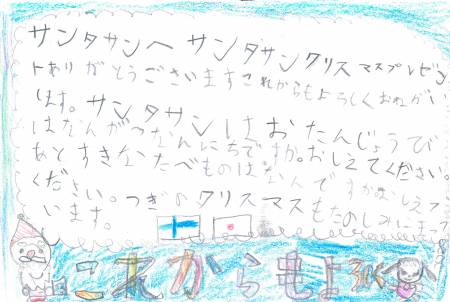 サンタサンへ サンタサンクリスマスプレゼン
トありがとうございますこれからもよろしくおねがい
します。サンタサンはおたんじょうび
はなんがつなんにちですか。おしえてください。
あとすきなたべものはなんですかおしえて
ください。つぎのクリスマスもたのしみにまって
います。
これからもよろしく